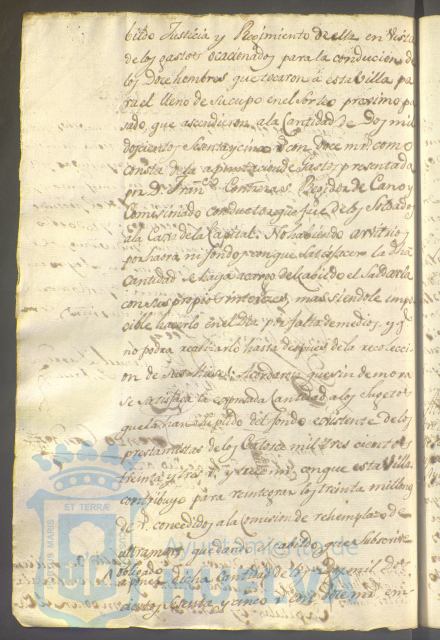 bildo Justicia y Regimiento de ella en vista
de los gastos ocacionados para la conducion de
los Doce hombres que tocaron á esta Villa pa
ra el lleno de su cupo en el Sorteo proximo pa
sado, que ascendieron a la Cantidad de dos mil
doscientos sesenta y cinco Doce mrs como
consta de la de Gastos presentada
por Dn Franco Contreras Regidor de Cano y
Comicionado conductor que fué de los Soldados
a la Caxa de la Capital: No habiendo arvitrio
por haora ni fondo con que satisfacer la dha
Cantidad el Cabildo el saldarla
con sus propios intereses, mas siendole impo
cible hacerlo en el dia por falta de medios, y q
no podra realizarlo hasta despues de la recolecci
on de acordaron que sin demora
se satisfaga la expresada Cantidad a los sugetos
que la han del fondo existente de los
prestamistas de los Catorce mil tres cientos
treinta y tres rs y mrs con que esta Villa
contribuyo para reintegrar los treinta millones
de rs concedidos a la Comision de rehemplazo de
ultramar, quedando el Cabildo que subscrive
obligado a poner dicha Cantidad de los dos mil dos
cientos sesenta y cinco doce mrs en
Ayuntamiento de
HUELVA
MARIS ET TERRÆ